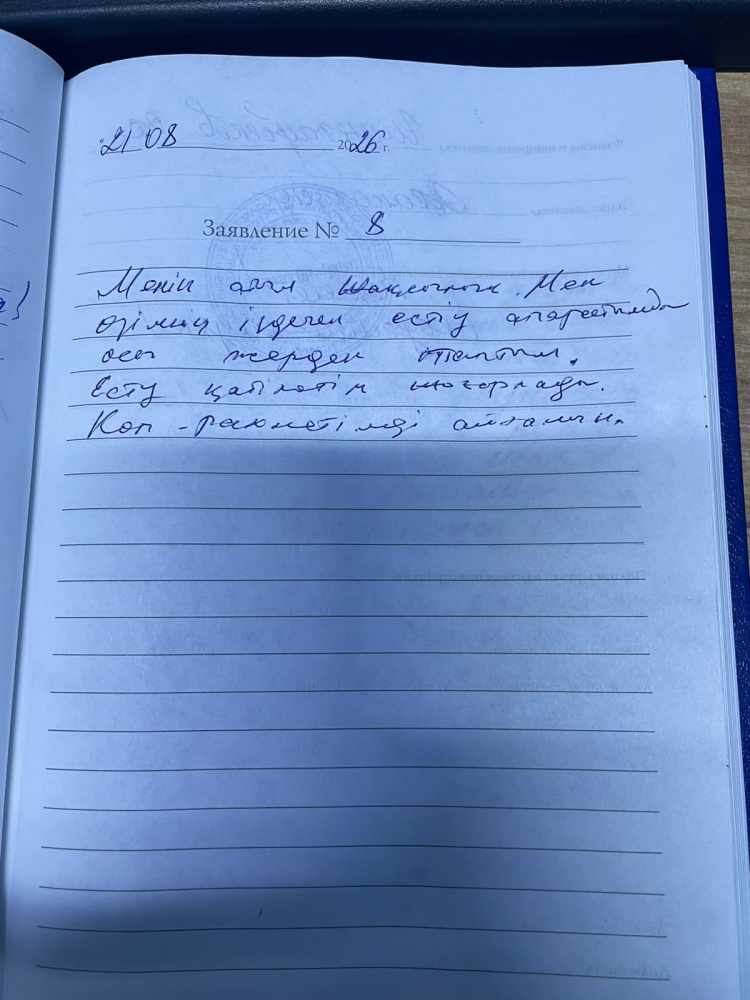 21 08 2026 г.
Заявление № 8
Менің атым Мен
өзімнің іздеген есту апаратымды
осы жерден таптым.
Есту қабілетім жоғарлады.
Көп - рахметімді айтамын.